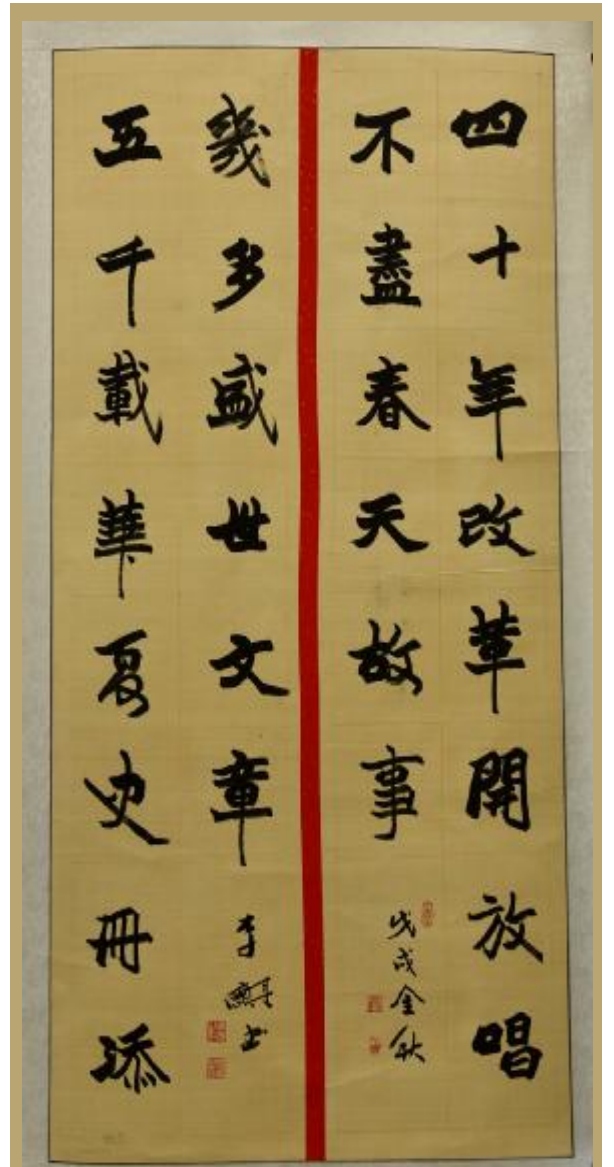 四十年改革開放唱
不盡春天故事
戊戌金秋
五千載華夏史冊添
幾多盛世文章
李書